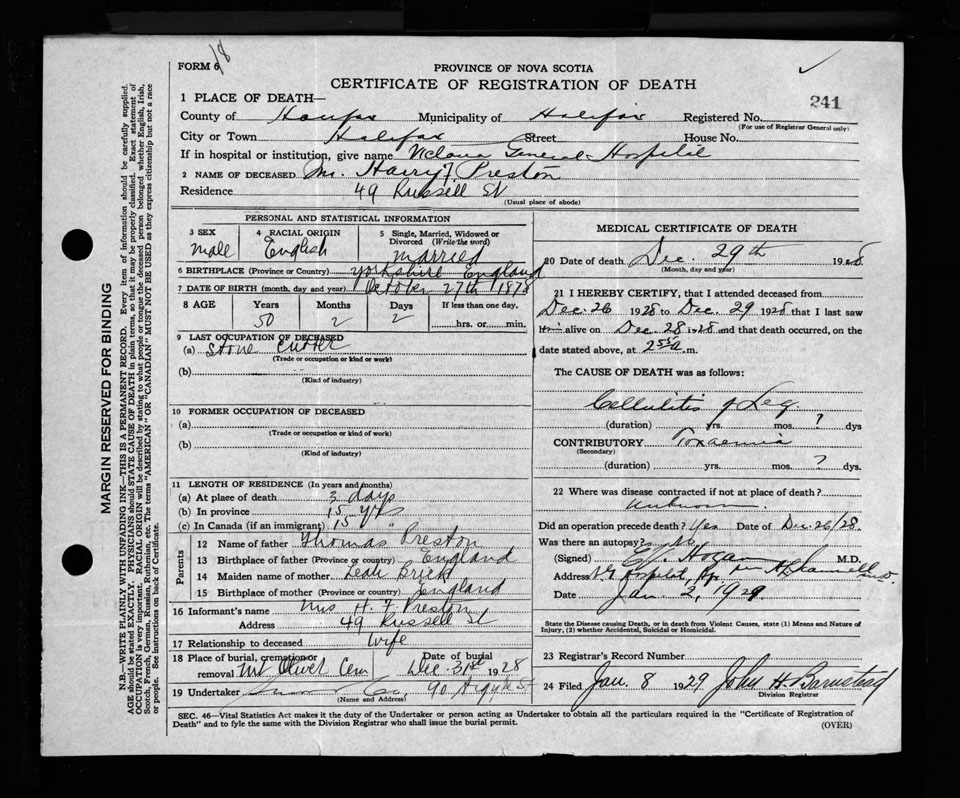 FORM 6
18
PROVINCE OF NOVA SCOTIA
CERTIFICATE OF REGISTRATION OF DEATH
241
1 PLACE OF DEATH—
County of Halifax Municipality of Halifax Registered No.
(For use of Registrar General only)
City or Town Halifax Street House No.
If in hospital or institution, give name Victoria General Hospital
2 NAME OF DECEASED Mr. Harry F. Preston
Residence 49 Russell St
(Usual place of abode)
PERSONAL AND STATISTICAL INFORMATION
3 SEX
Male
4 RACIAL ORIGIN
English
5 Single, Married, Widowed or Divorced (Write the word)
Married
6 BIRTHPLACE (Province or Country) Yorkshire England
7 DATE OF BIRTH (month, day and year) October 27th 1878
8 AGE Years Months Days If less than one day,
50 2 2 hrs. or min.
9 LAST OCCUPATION OF DECEASED
(a) Stone Cutter
(Trade or occupation or kind or work)
(b)
(Kind of industry)
10 FORMER OCCUPATION OF DECEASED
(a)
(Trade or occupation or kind of work)
(b)
(Kind of industry)
11 LENGTH OF RESIDENCE (In years and months)
(a) At place of death 3 days
(b) In province 15 yrs
(c) In Canada (if an immigrant) 15 "
Parents
12 Name of father Thomas Preston
13 Birthplace of father (Province or country) England
14 Maiden name of mother Leah Brick
15 Birthplace of mother (Province or country) England
16 Informant's name Mrs H. F. Preston
Address 49 Russell St
17 Relationship to deceased Wife
18 Place of burial, cremation or removal Mt Olivet Cem
Date of burial Dec 31st 1928
19 Undertaker & Co, 90 Argyle St
(Name and Address)
MEDICAL CERTIFICATE OF DEATH
20 Date of death Dec. 29th 1928
(Month, day and year)
21 I HEREBY CERTIFY, that I attended deceased from
Dec. 26 1928 to Dec. 29 1928 that I last saw
him alive on Dec 28 1928 and that death occurred, on
date stated above, at 2.55 a.m.
The CAUSE OF DEATH was as follows:
Cellulitis of Leg
(duration) yrs. mos. ? dys
CONTRIBUTORY Toxaemia
(Secondary)
(duration) yrs. mos. ? dys.
22 Where was disease contracted if not at place of death?
unknown.
Did an operation precede death? Yes Date of Dec. 26/28.
Was there an autopsy? No.
(Signed) Hogan M.D.
Address V G Hospital, Hfx
Date Jan. 2, 1929
State the Disease causing Death, or in death from Violent Causes, state (1) Means and Nature of
Injury, (2) whether Accidental, Suicidal or Homicidal.
23 Registrar's Record Number
24 Filed Jan. 8 1929 John H. Barnstead
Division Registrar
SEC. 46—Vital Statistics Act makes it the duty of the Undertaker or person acting as Undertaker to obtain all the particulars required in the "Certificate of Registration of
Death" and to fyle the same with the Division Registrar who shall issue the burial permit.
(OVER)
MARGIN RESERVED FOR BINDING
N.B.—WRITE PLAINLY WITH UNFADING INK—THIS IS A PERMANENT RECORD. Every item of information should be carefully supplied.
AGE should be stated EXACTLY. PHYSICIANS should STATE CAUSE OF DEATH in plain terms, so that it may be properly classified. Exact statement of
OCCUPATION is very important. RACIAL ORIGIN will be described by stating to what people or tongue the deceased person belonged whether English, Irish,
Scotch, French, German, Russian, Ruthenian, etc. The terms "AMERICAN" OR "CANADIAN" MUST NOT BE USED as they express citizenship but not a race
or people. See instructions on back of Certificate.